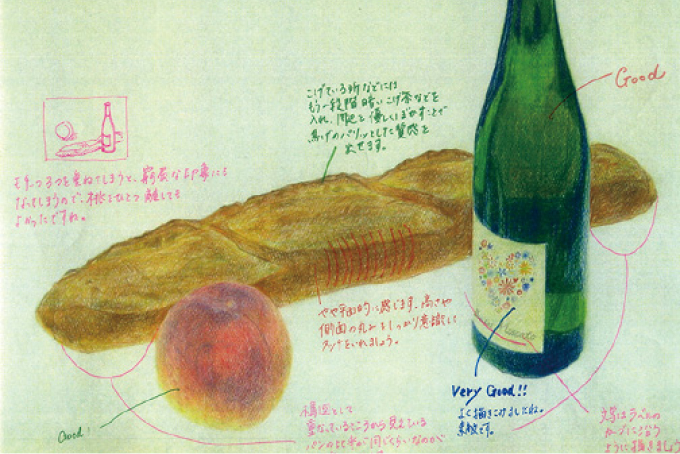 Good
こげている所などには
もう一段階暗いこげ茶などを
入れ、優しくぼかすことで
焦げのパリッとした質感を
出せます。
重ねてしまうと、窮屈な印象にも
なってしまうので、桃をひとつ離しても
よかったですね。
やや平面的に感じます。高さや
側面の丸みをしっかり意識して
いれましょう。
Very Good!!
よく描きこめましたね。
素敵です。
Good!
構図として
重なっているところから見えている
パンの 同じくらいなのが
文字はラベルの
カーブに沿う
ように描きましょう